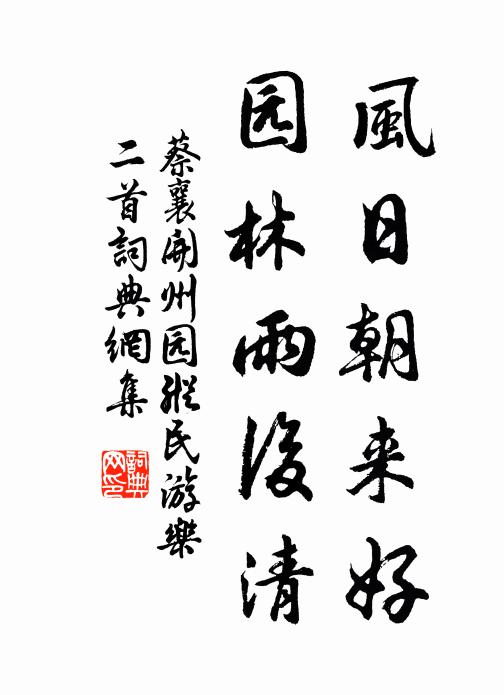 風日朝来好
园林雨後清
蔡襄開州园縦民游樂
二首詞典網集
詞典
网